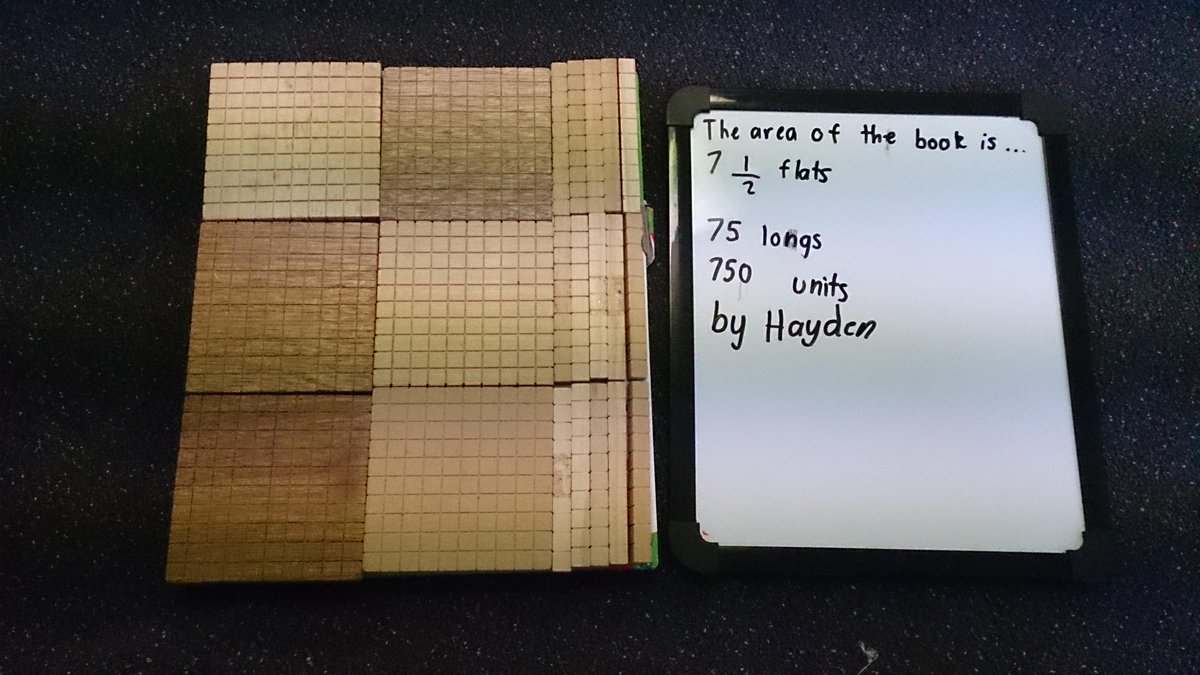 The area of the book is...
7 1/2 flats
75 longs
750 units
by Hayden